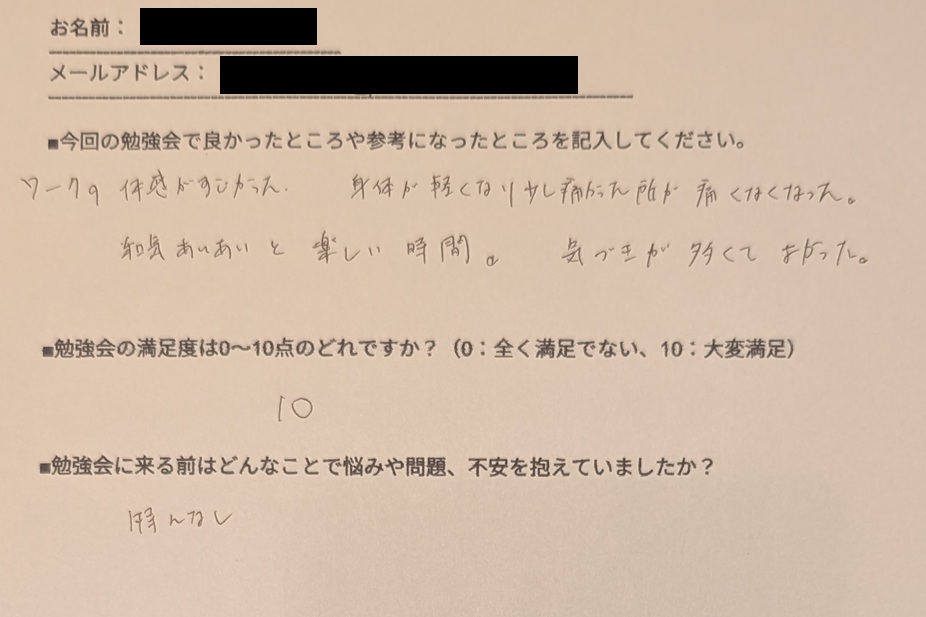 お名前：
メールアドレス：
■今回の勉強会で良かったところや参考になったところを記入してください。
ワークの 体感がすごかった. 身体が 軽くなり少し痛かった所が 痛くなくなった。
和気あいあい と 楽しい 時間。 気づきが 多くて よかった。
■勉強会の満足度は0〜10点のどれですか？（0：全く満足でない、10：大変満足）
10
■勉強会に来る前はどんなことで悩みや問題、不安を抱えていましたか？
なし